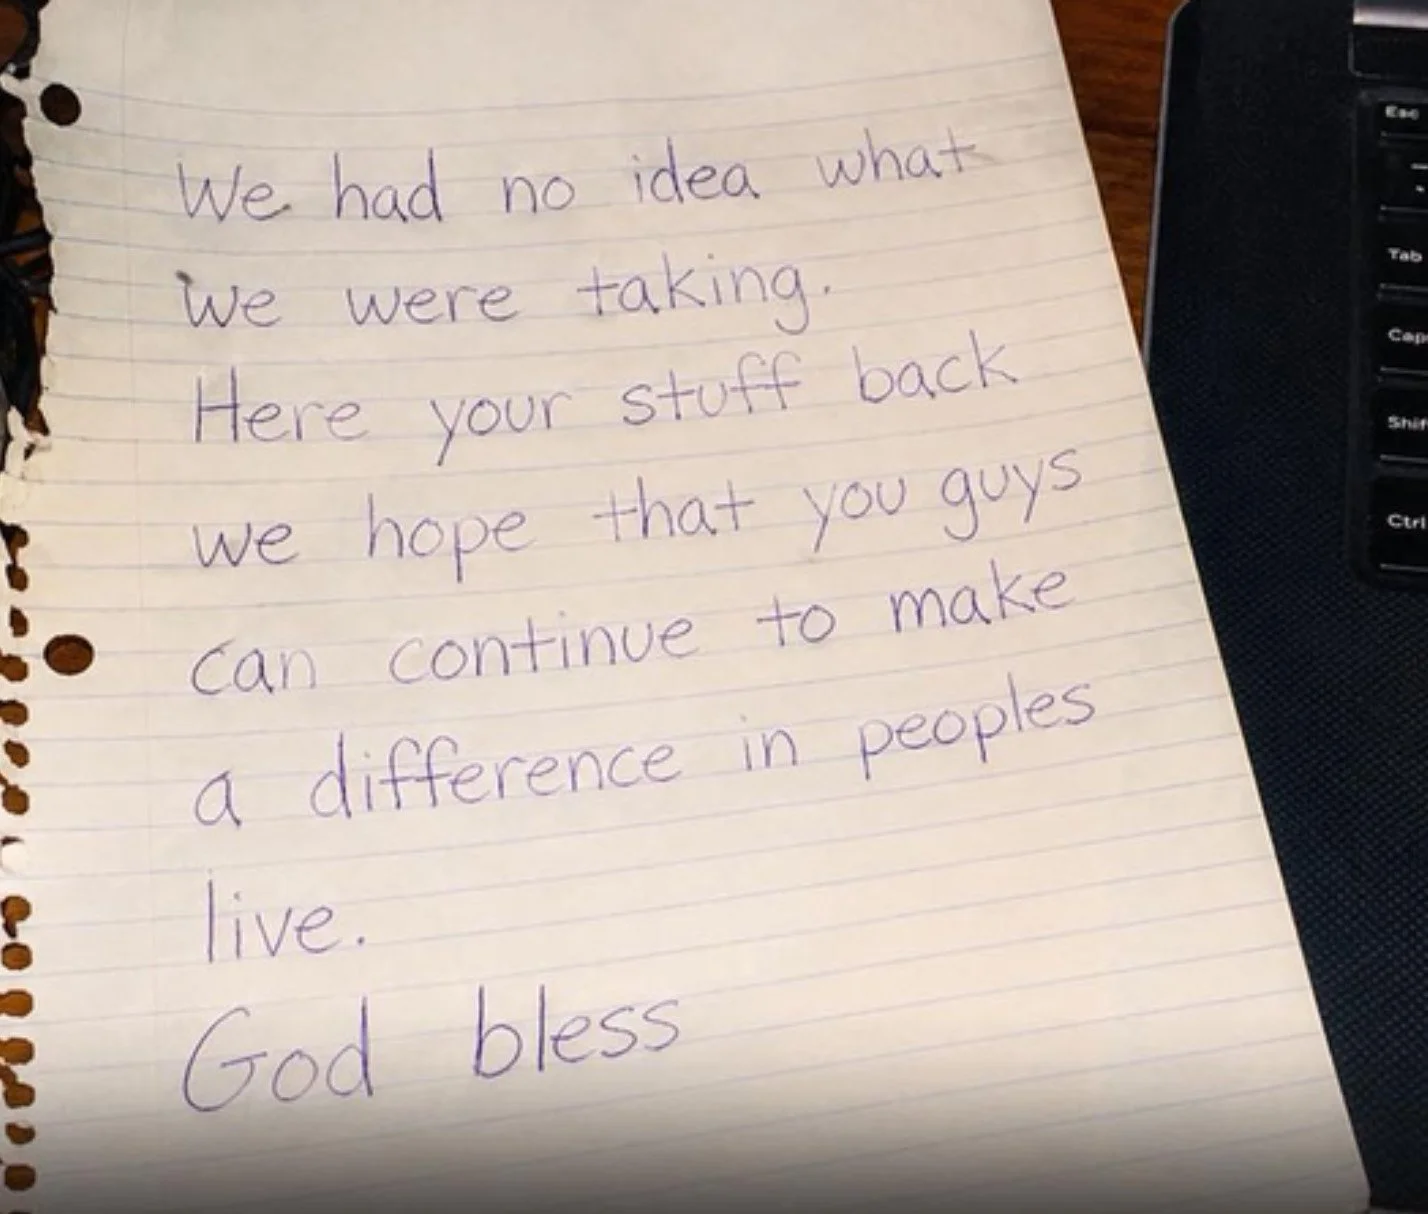 We had no idea what
we were taking.
Here your stuff back
we hope that you guys
can continue to make
a difference in peoples
live.
God bless
Esc
Tab
Cap
Shif
Ctrl